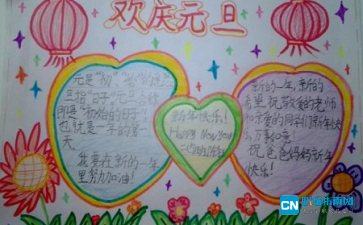 欢庆元旦
元是"初"
旦指"日子"元旦合称
即是"初始的日子"
也就是一年的第一
天。
我要在新的一年
里努力加油!
新年快乐!
Happy New Year
新的一年,新的
希望,祝敬爱的老师
和亲爱的同学们新年快
乐万事如意。
祝爸爸妈妈新年
快乐!
CN